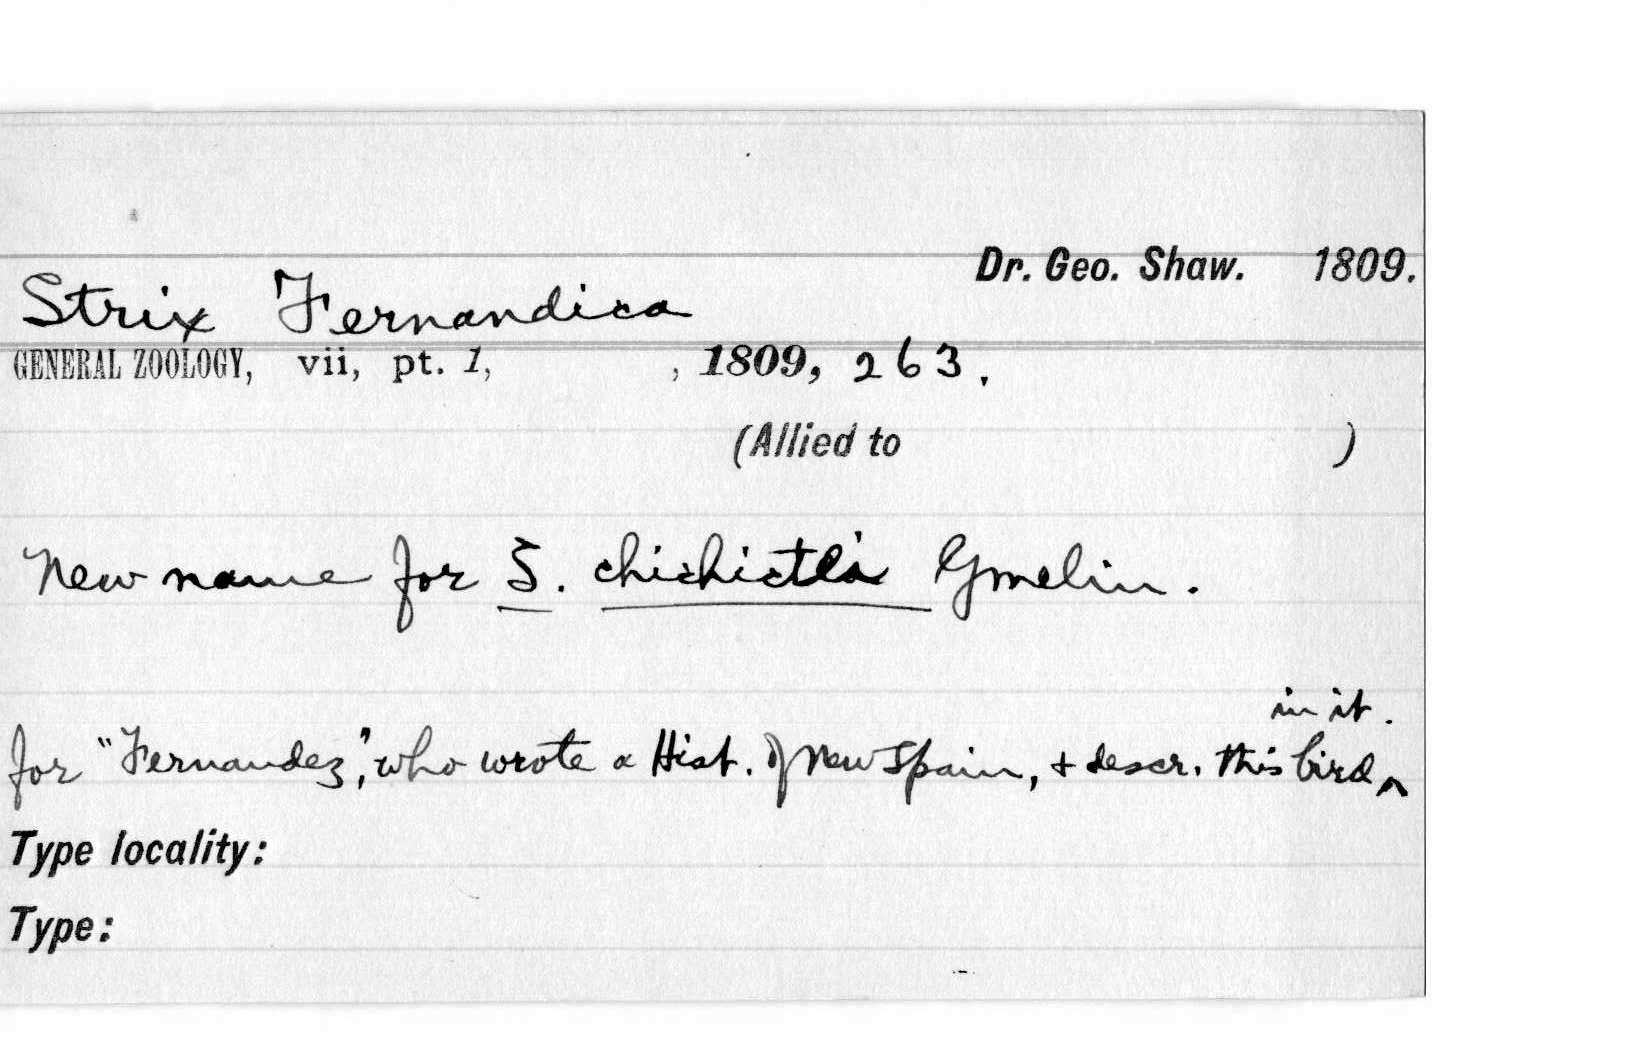 Dr. Geo. Shaw. 1809.
Strix Fernandica
GENERAL ZOOLOGY, vii, pt. 1, , 1809, 263.
(Allied to )
New name for S. chichictli Gmelin.
in it.
for "Fernandez," who wrote a Hist. of New Spain, + descr. this bird ^
Type locality:
Type: